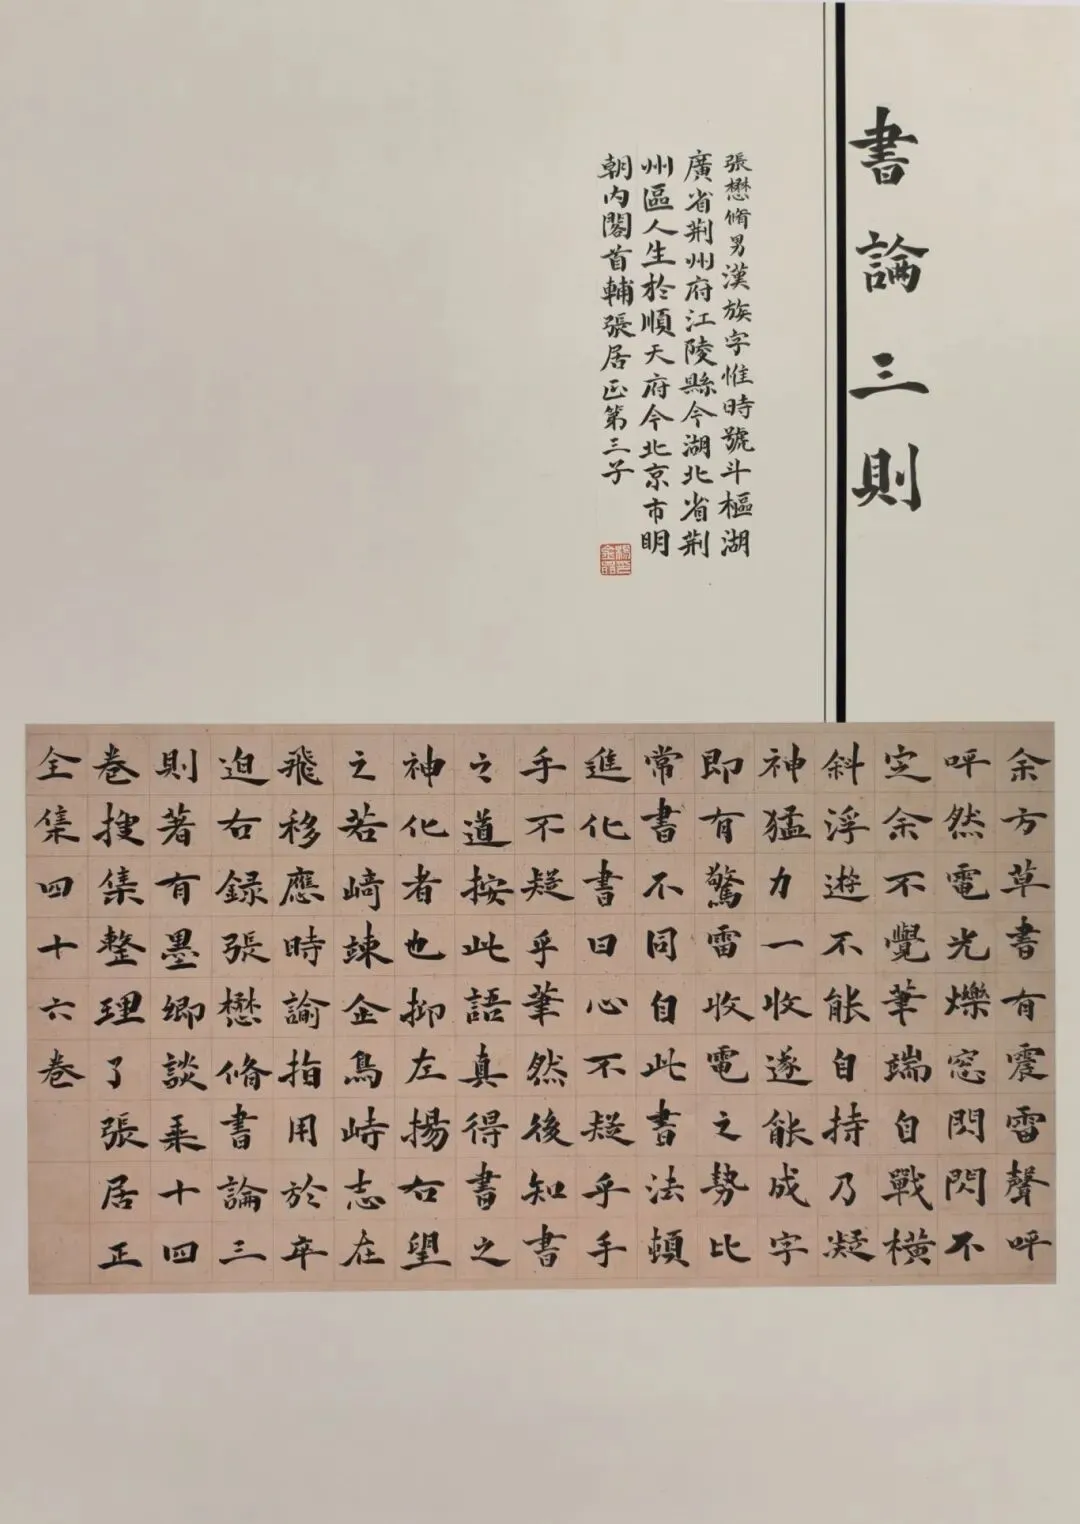 書論三則
張懋脩男漢族字惟時號斗樞湖
廣省荆州府江陵縣今湖北省荆
州區人生於順天府今北京市明
朝内閣首輔張居正第三子
余方草書有震雷聲呯
呯然電光爍窓閃閃不
定余不覺筆端自戰橫
斜浮遊不能自持乃凝
神猛力一收遂能成字
即有驚雷收電之勢比
常書不同自此書法頓
進化書曰心不疑乎手
手不疑乎筆然後知書
之道按此語真得書之
神化者也抑左揚右望
之若崎竦金鳥峙志在
飛移應時諭指用於卒
迫右録張懋脩書論三
則著有墨卿談乘十四
卷搜集整理了張居正
全集四十六卷